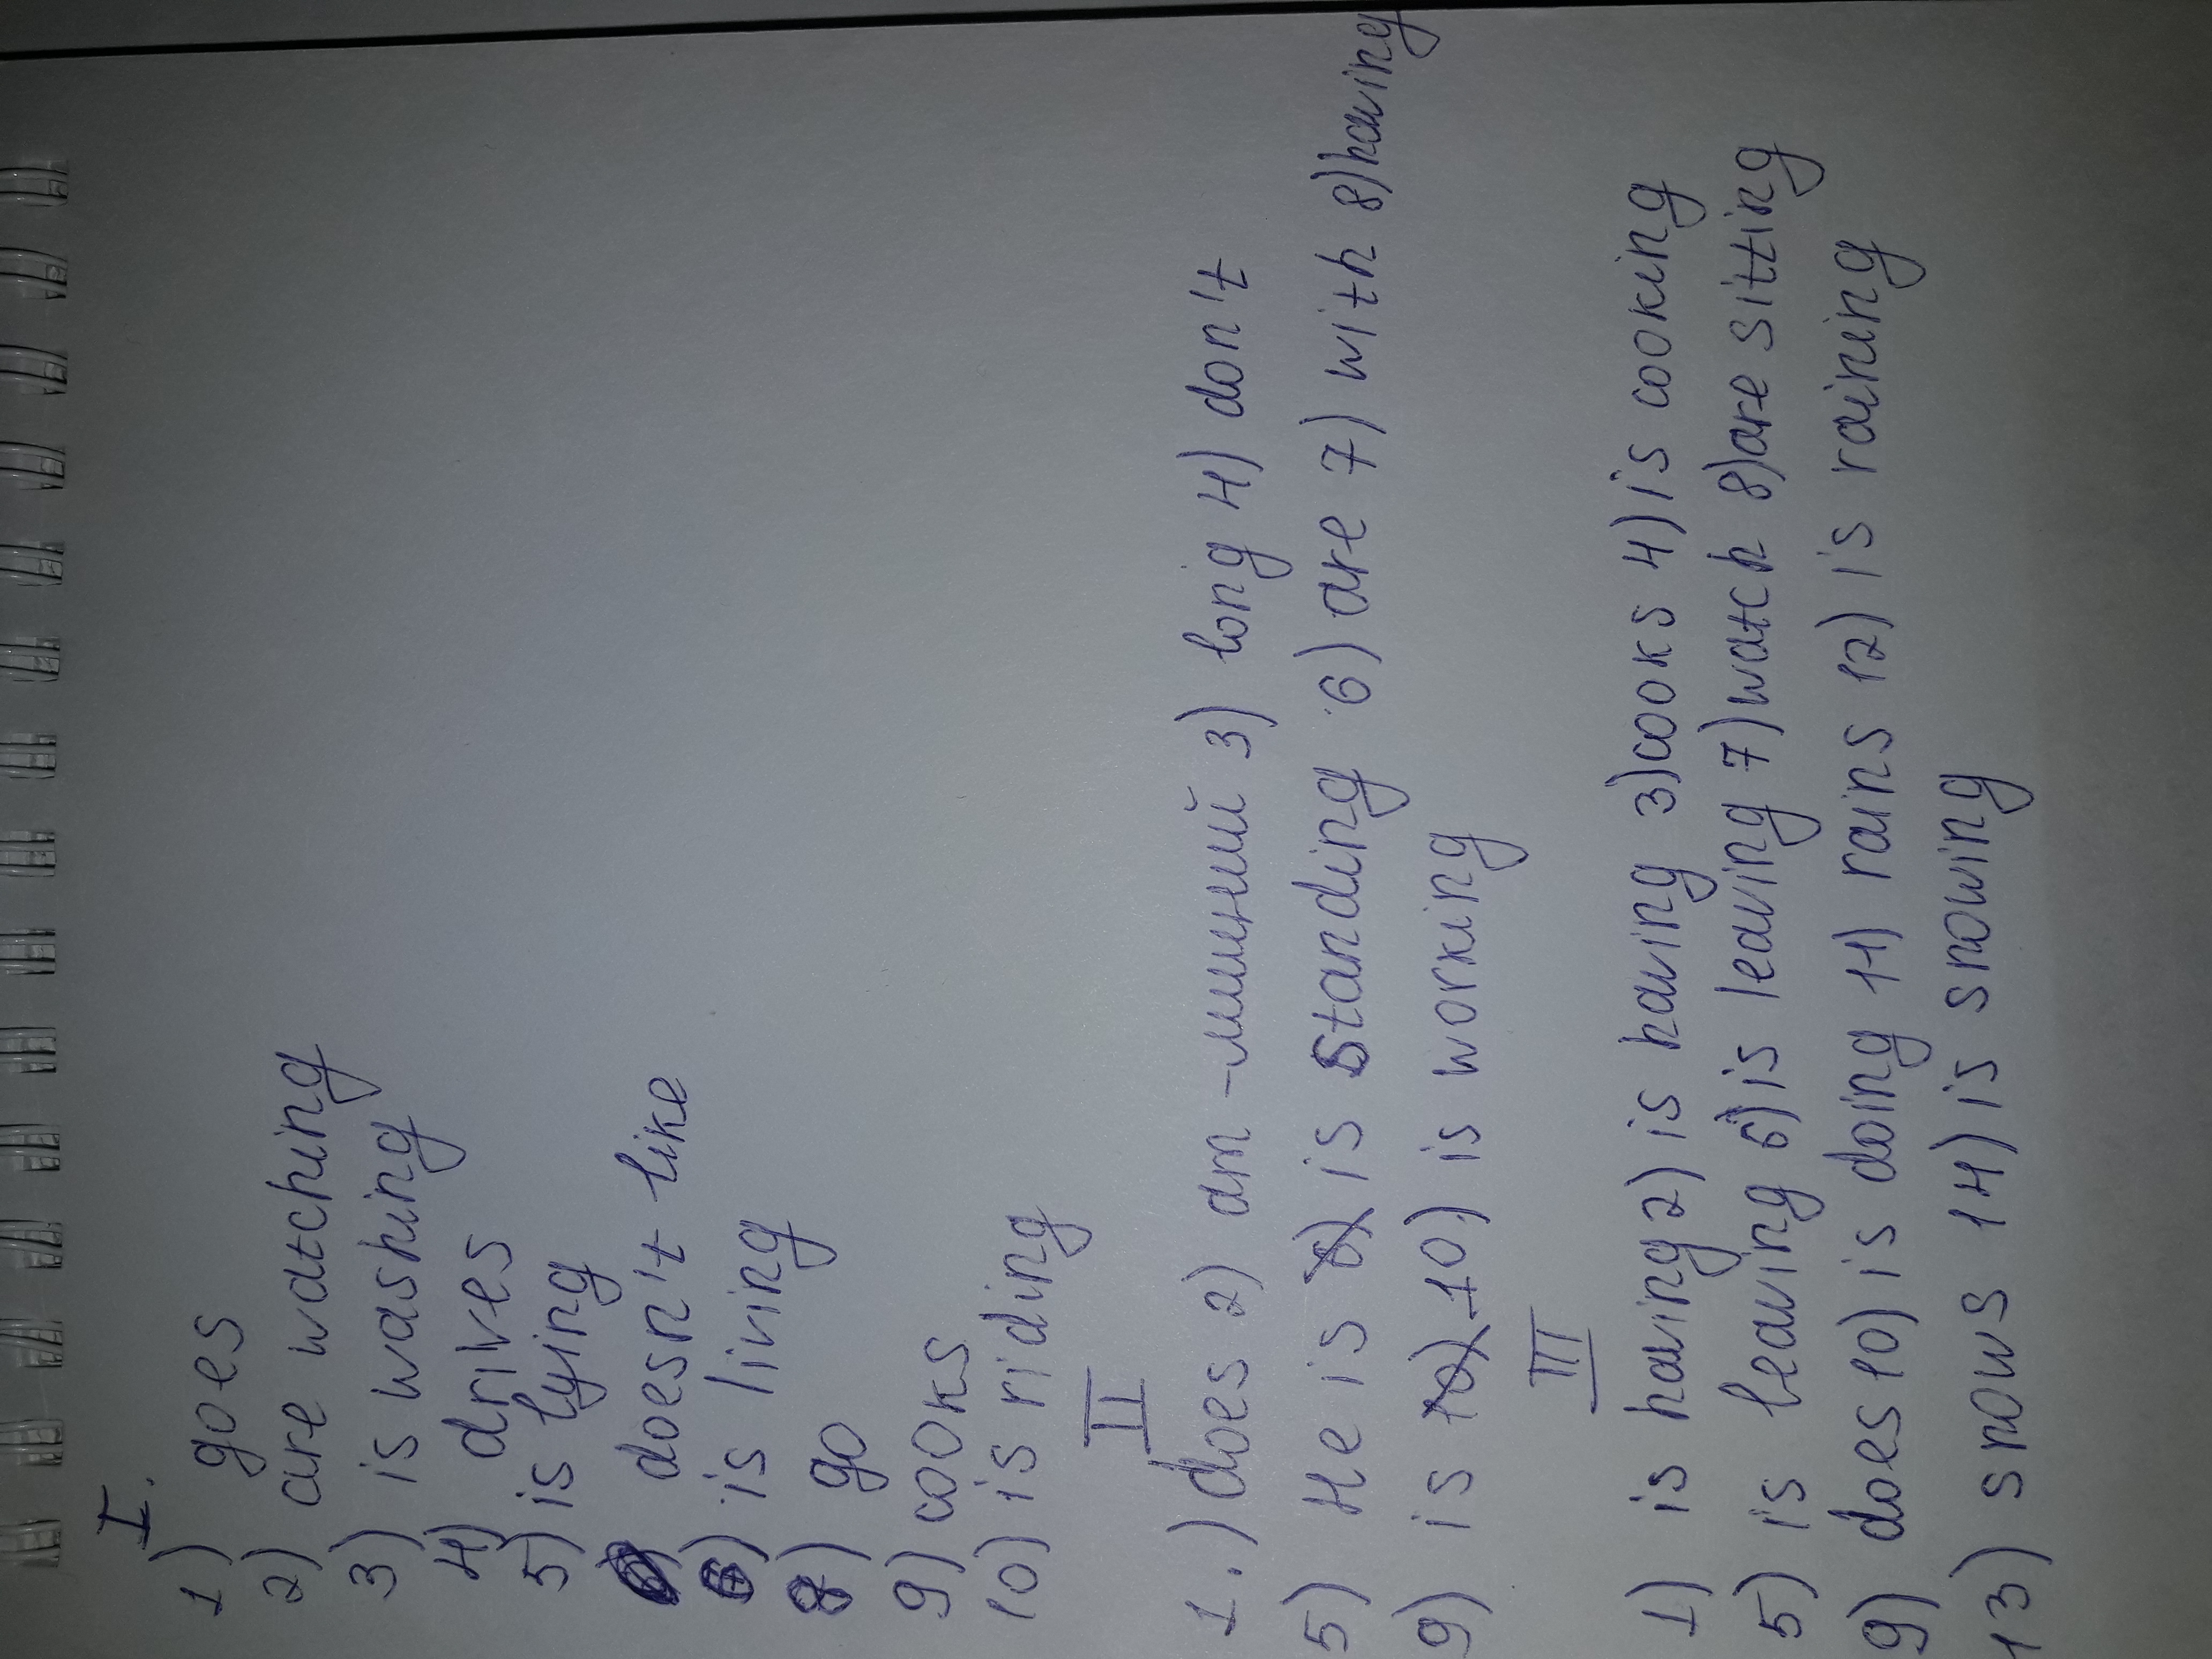 I.
1) goes
2) are watching
3) is washing
4) drives
5) is lying
doesn't like
is living
8) go
9) cooks
10) is riding
II
1.) does 2) am -лишний 3) long 4) don't
5) He is is standing 6) are 7) with 8) having
9) is 10) is working
III
1) is having 2) is having 3) cooks 4) is cooking
5) is leaving 6) is leaving 7) watch 8) are sitting
9) does 10) is doing 11) rains 12) is raining
13) snows 14) is snowing